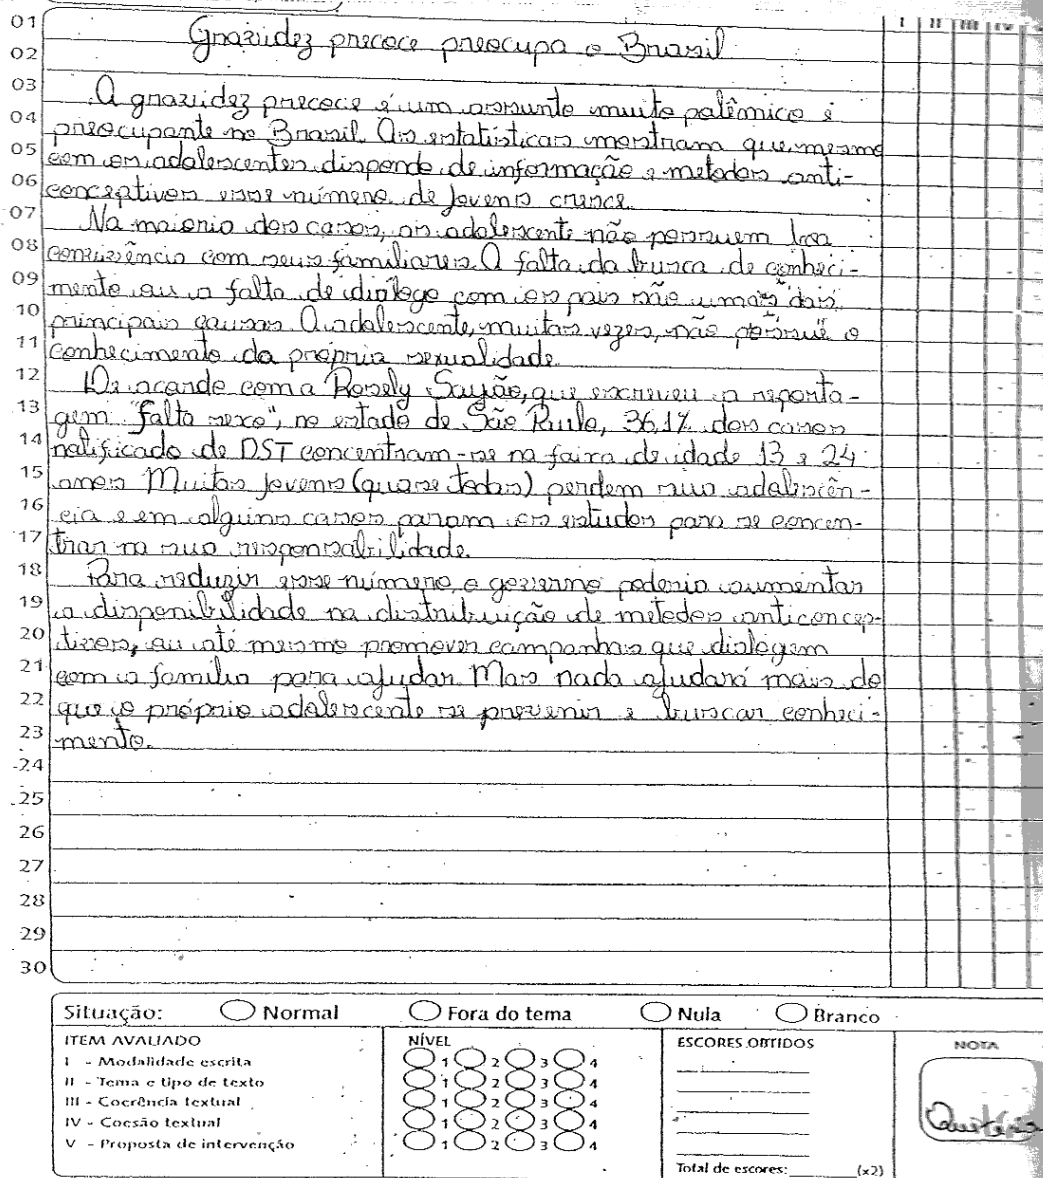 01
I II III IV
Gravidez precoce preocupa o Brasil
02
03
A gravidez precoce é um assunto muito polêmico é
04
preocupante no Brasil. As estatísticas mostram que, mesmo
05
com os adolescentes dispondo de informação e metodos anti-
06
conceptivos esse número de jovens cresce.
07
Na maioria dos casos, os adolescente não possuem boa
08
convivência com seus familiares. A falta da busca de conheci-
09
mento ou a falta de dialogo com os pais são umas das
10
principais causas. O adolescente, muitas vezes, não possui o
11
conhecimento da própria sexualidade.
12
De acordo com a Rosely Sayão, que escreveu a reporta-
13
gem "falta sexo", no estado de São Paulo, 36,1% dos casos
14
notificado de DST concentram-se na faixa de idade 13 e 24
15
anos. Muitas jovens (quase todas) perdem sua adolescên-
16
cia e em alguns casos param os estudos para se concen-
17
trar na sua responsabilidade.
18
Para reduzir esse número, o governo poderia aumentar
19
a disponibilidade na distribuição de metodos anticoncep-
20
tivos, ou até mesmo promover campanhas que dialogem
21
com a família para ajudar. Mas nada ajudará mais do
22
que o próprio adolescente se prevenir e buscar conheci-
23
mento.
24
25
26
27
28
29
30
Situação: Normal Fora do tema Nula Branco
ITEM AVALIADO NÍVEL ESCORES OBTIDOS NOTA
I - Modalidade escrita 1 2 3 4
II - Tema e tipo de texto 1 2 3 4
III - Coerência textual 1 2 3 4
IV - Coesão textual 1 2 3 4
V - Proposta de intervenção 1 2 3 4
Total de escores: (x2)